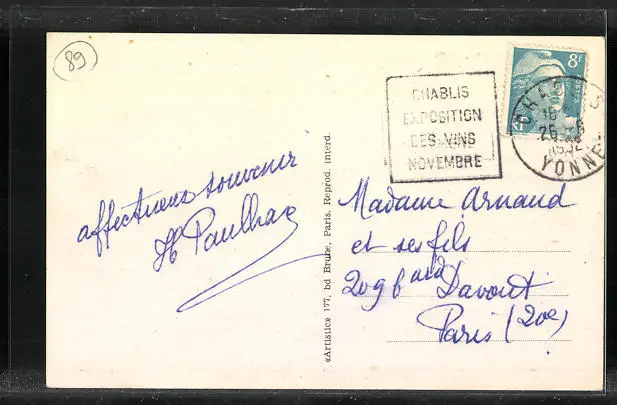 89
CHABLIS
EXPOSITION
DES VINS
NOVEMBRE
8F
YONNE
affectueux souvenir
H Paulhac
«Artistic» 177, bd Brune, Paris. Reprod. interd.
Madame Arnaud
et ses fils
209 b ard Davout
Paris (20e)